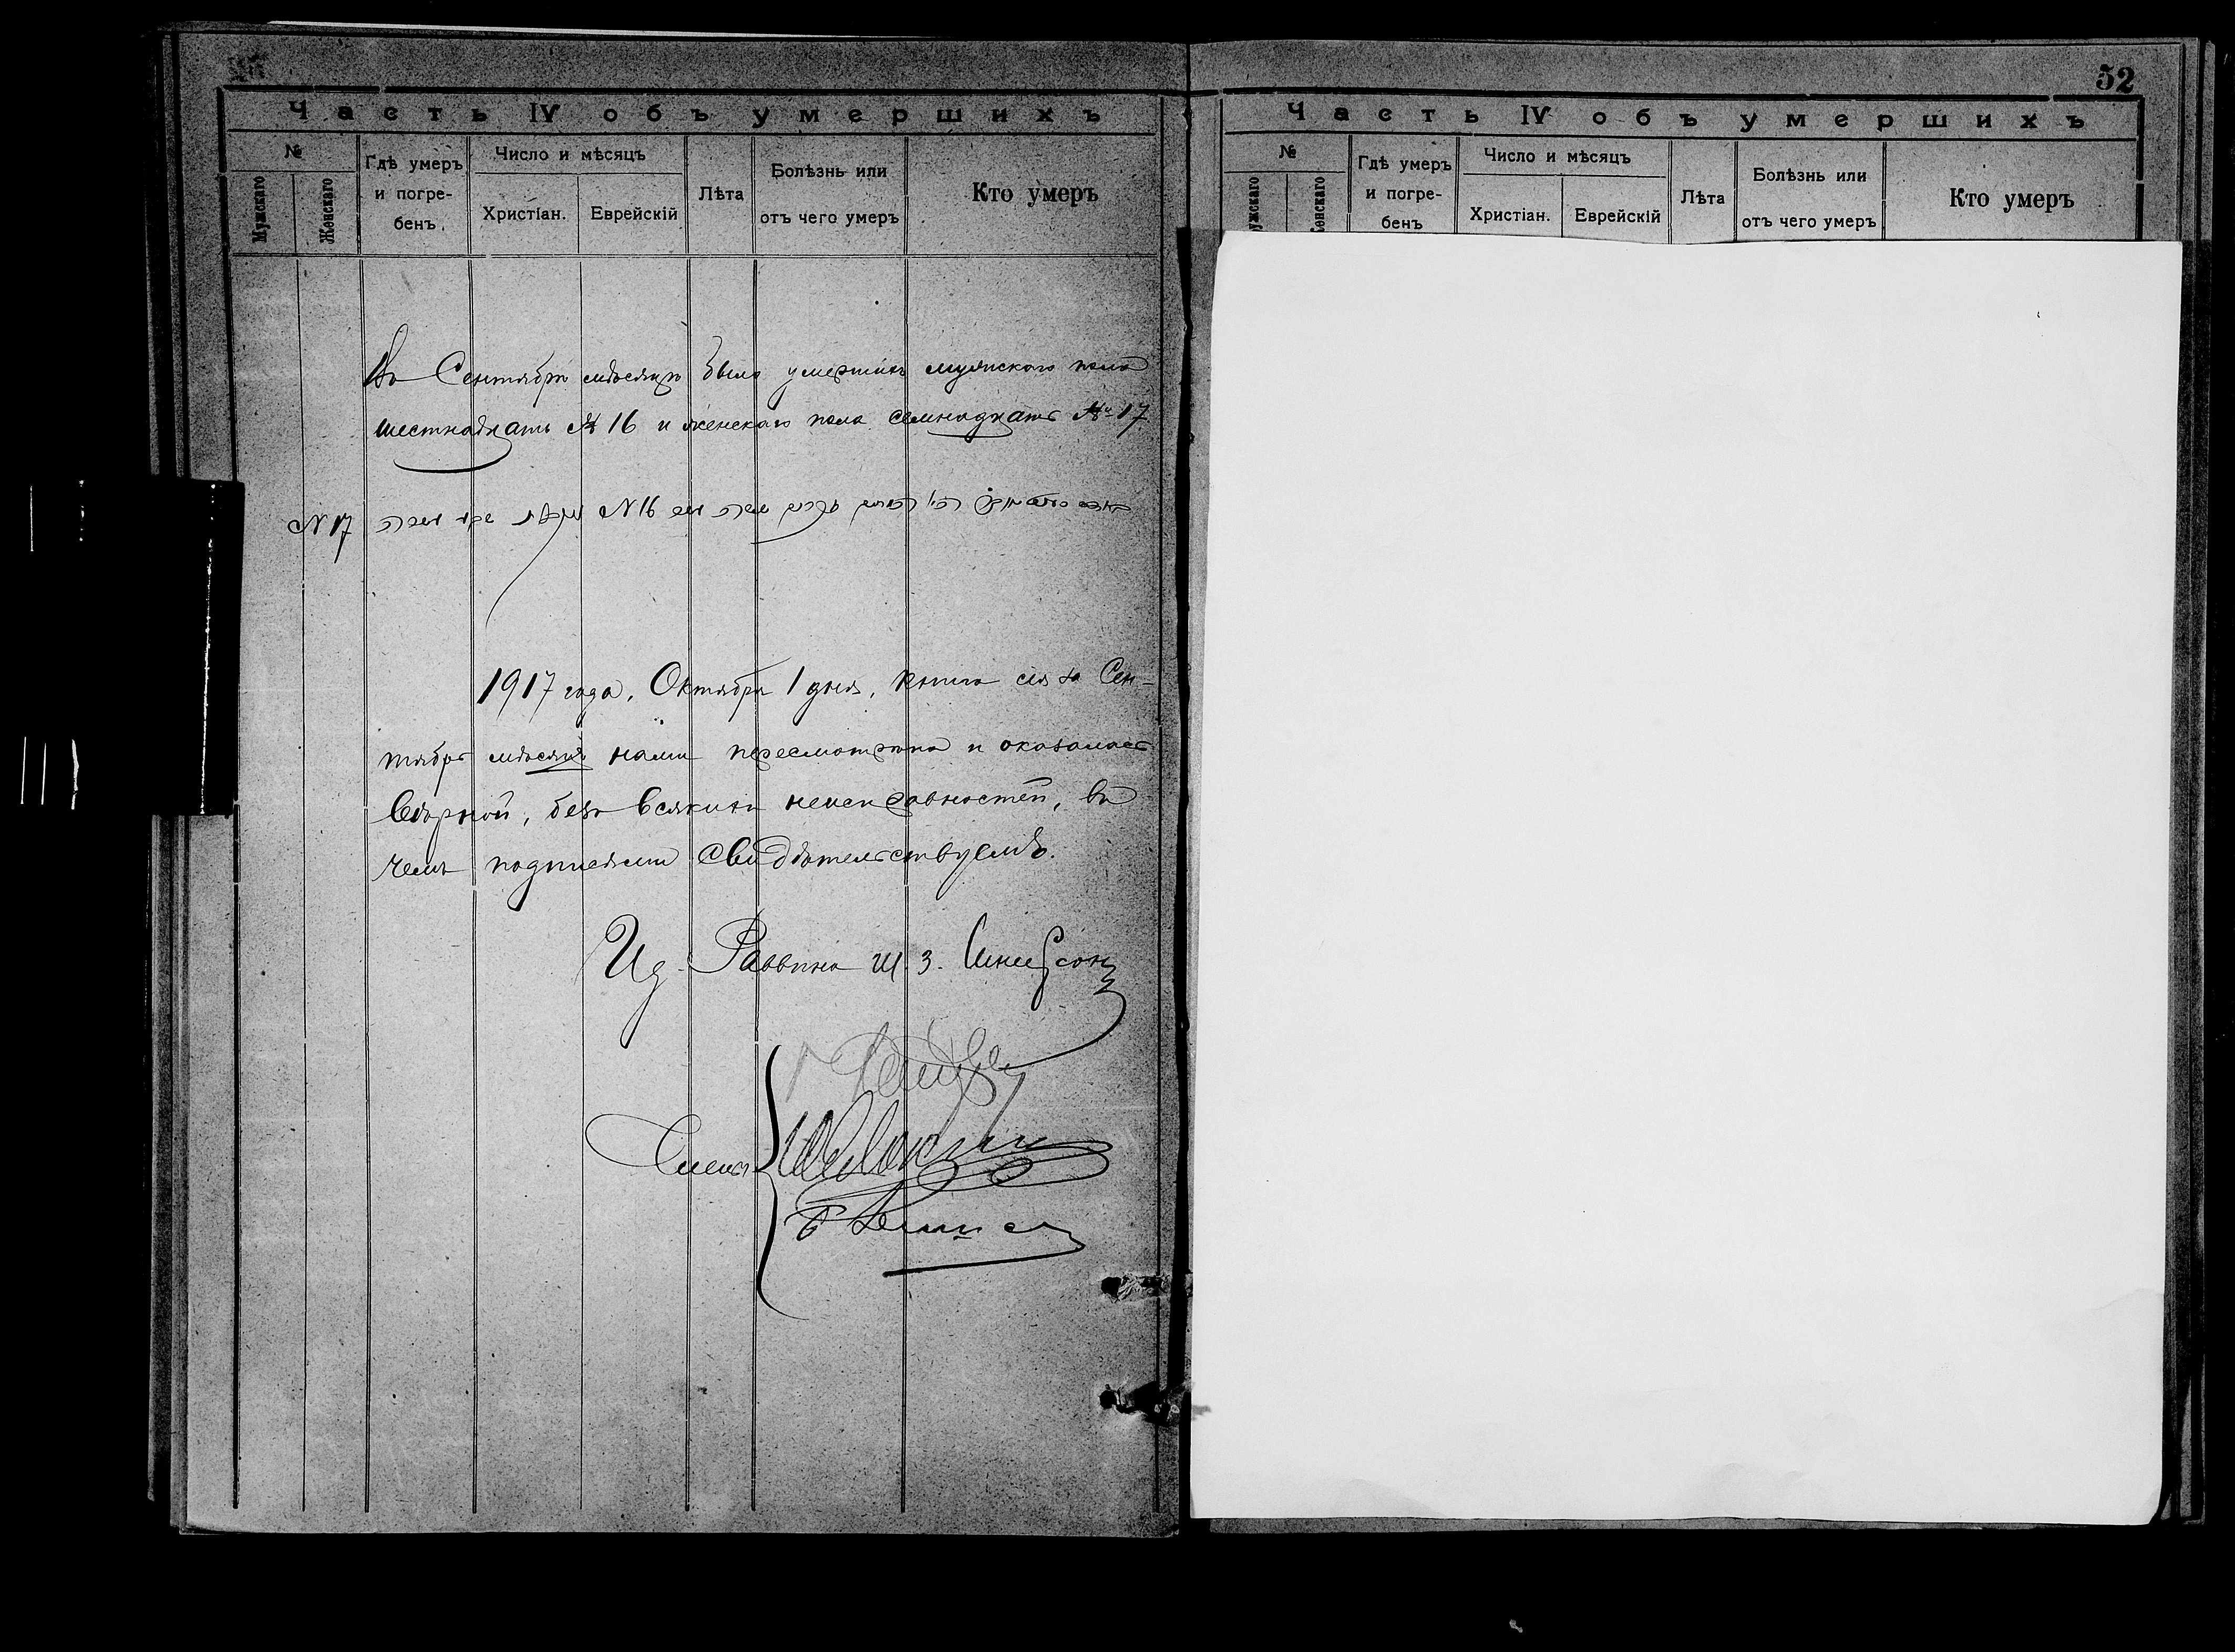 Часть IV объ умершихъ
№
Мужскаго
Женскаго
Гдѣ умеръ
и погре-
бенъ.
Число и мѣсяцъ
Христіан.
Еврейскій
Лѣта
Болѣзнь или
отъ чего умеръ
Кто умеръ
Въ Сентябрѣ мѣсяцѣ было умершихъ мужскаго пола
шестнадцать № 16 и женскаго пола семнадцать № 17
№ 16
№ 17
1917 года, Октября 1 дня, книга сія за Сен-
тябрь мѣсяцъ нами пересмотрѣна и оказалась
вѣрной, безъ всякихъ неисправностей, въ
чемъ подписями свидѣтельствуемъ.
Ид. Раввина Ш. З. Шнеерсонъ
Члены
52
Часть IV объ умершихъ
№
ужскаго
Женскаго
Гдѣ умеръ
и погре-
бенъ
Число и мѣсяцъ
Христіан.
Еврейскій
Лѣта
Болѣзнь или
отъ чего умеръ
Кто умеръ